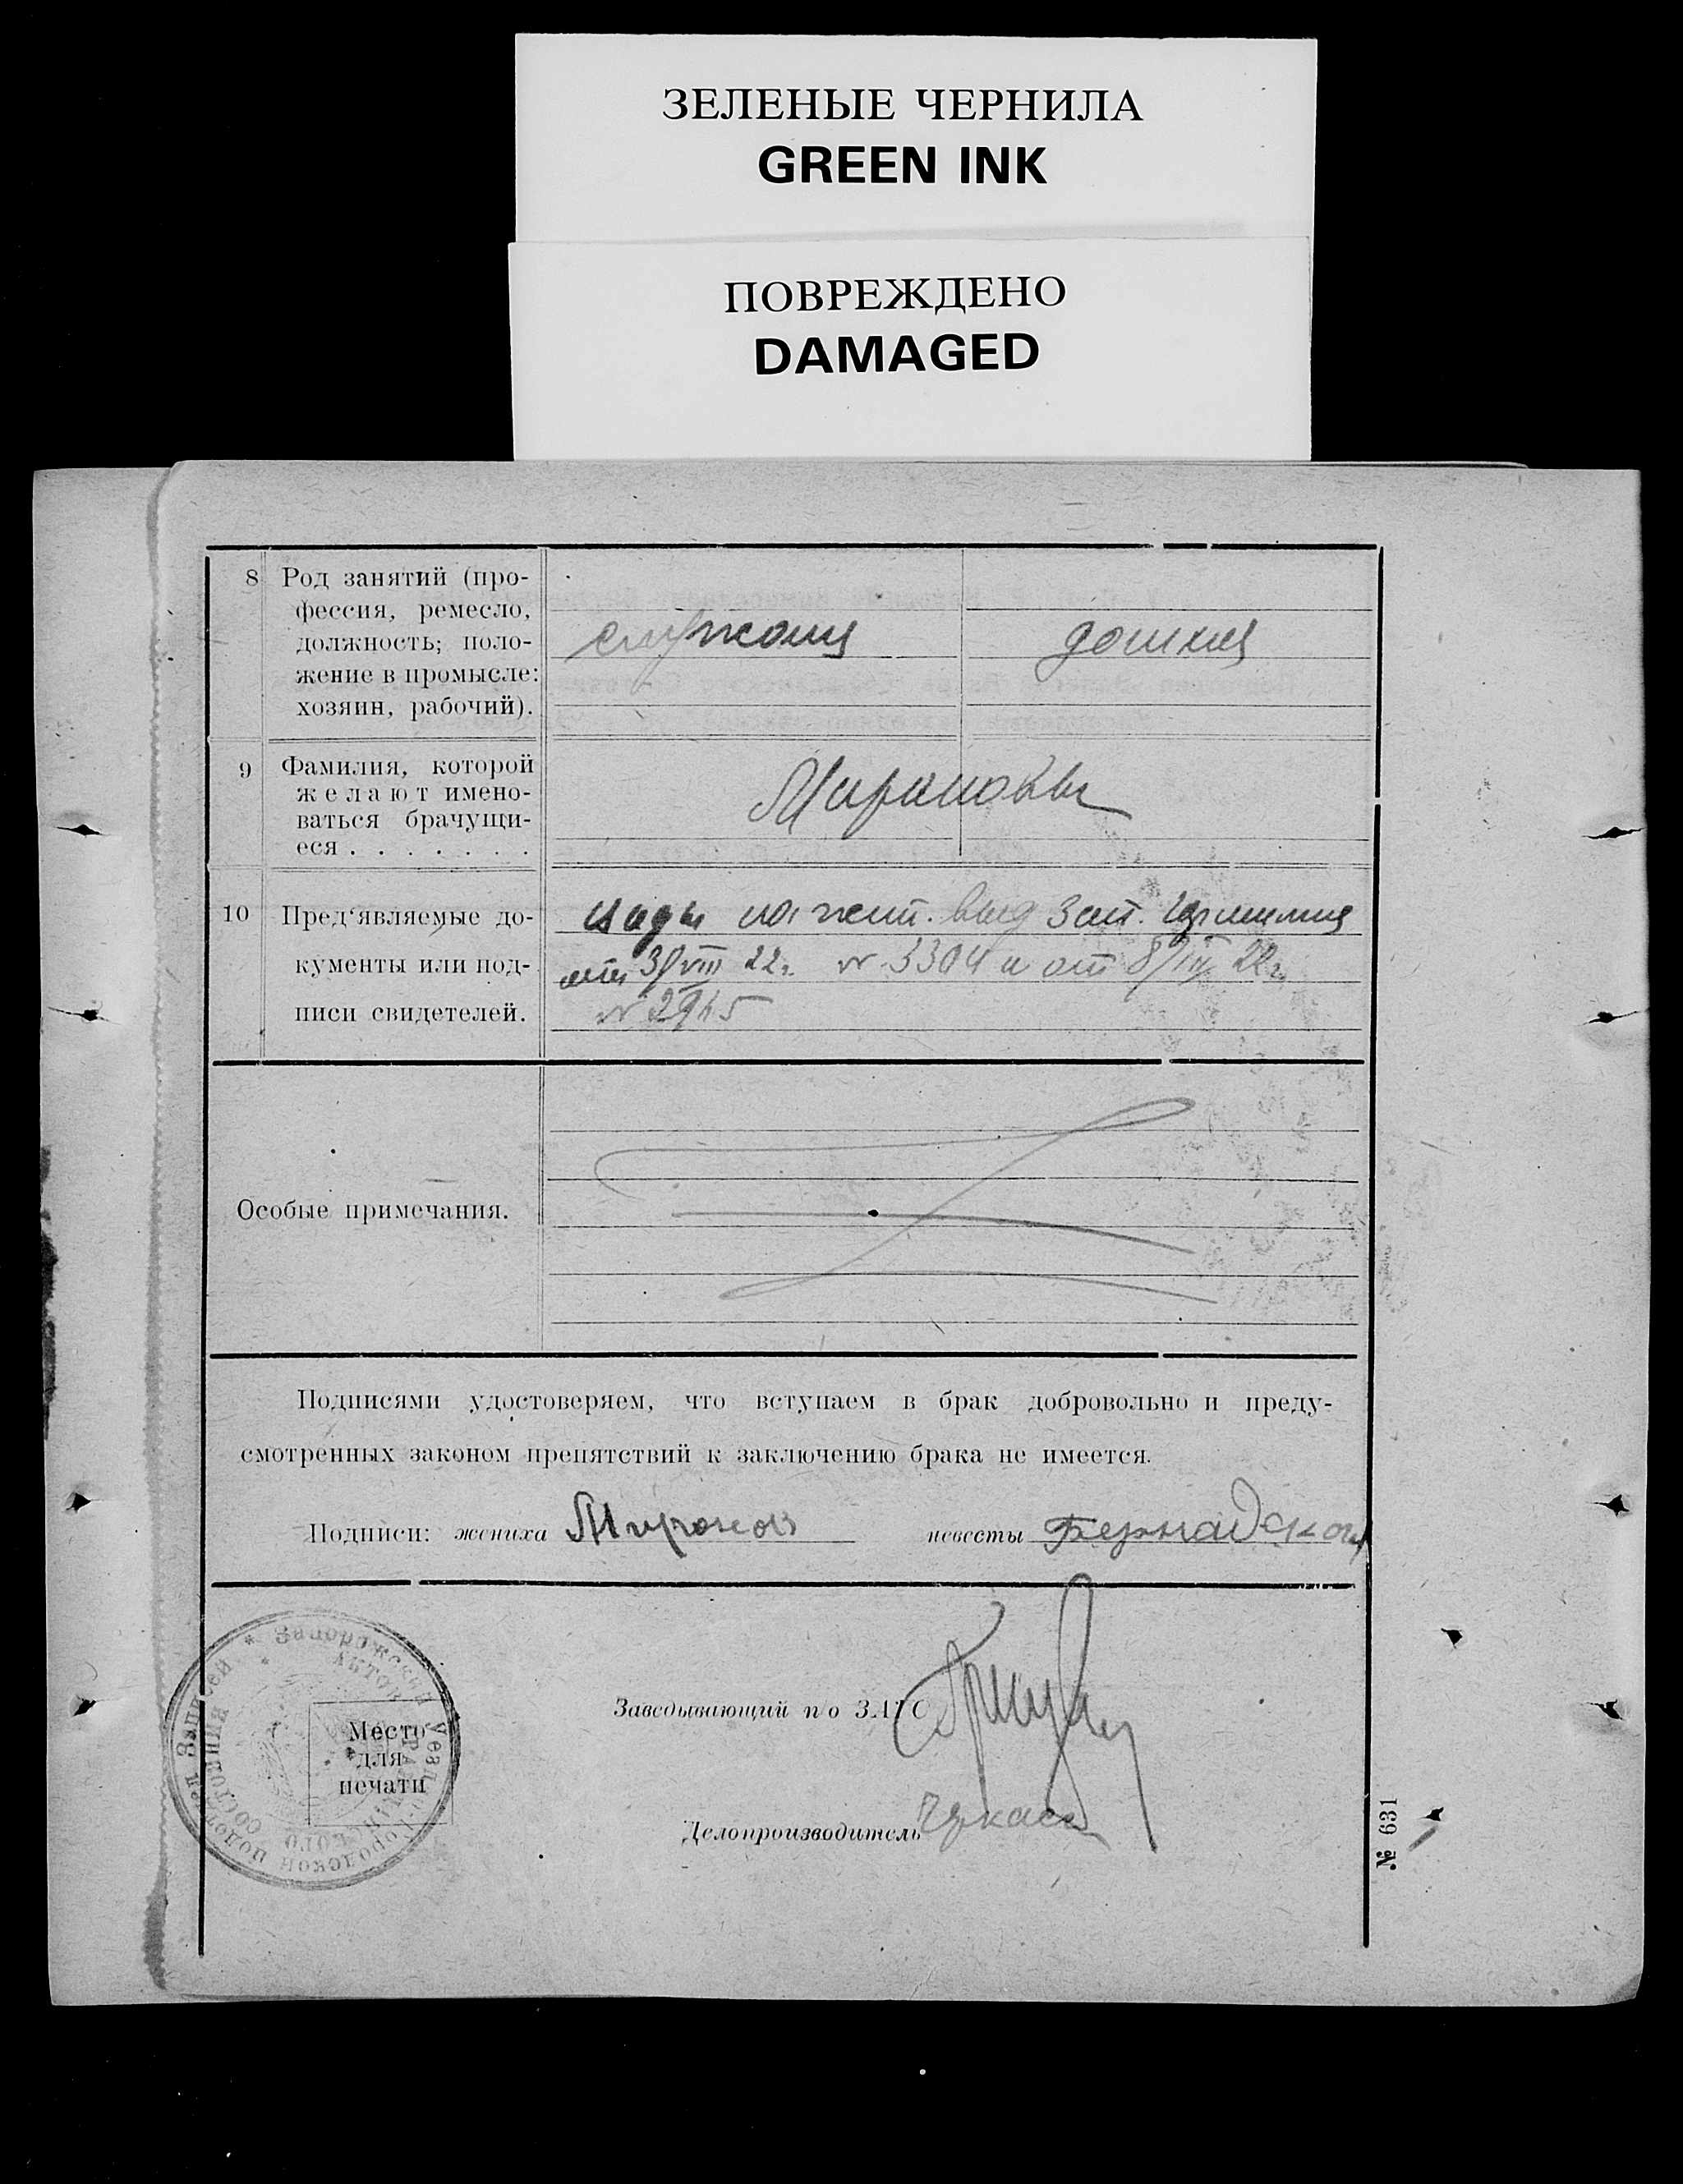 ЗЕЛЕНЫЕ ЧЕРНИЛА
GREEN INK
ПОВРЕЖДЕНО
DAMAGED
8 Род занятий (про-
фессия, ремесло,
должность; поло-
жение в промысле:
хозяин, рабочий).
домхоз
9 Фамилия, которой
желают имено-
ваться брачущи-
еся . . . . . . .
Мироновы
10 Пред'являемые до-
кументы или под-
писи свидетелей.
на жит. выд. Зап.
от 3/VIII 22 г. № 3304 и от 8/IV 22 г.
№ 2945
Особые примечания.
Подписями удостоверяем, что вступаем в брак добровольно и преду-
смотренных законом препятствий к заключению брака не имеется.
Подписи: жениха Миронов невесты Бернадская
* Запорожский Уезд.-Городской подотдел Записей
Актов Гражданского Состояния
Место
для
печати
Заведывающий п/о ЗАГС
Делопроизводитель Черкас
№ 631